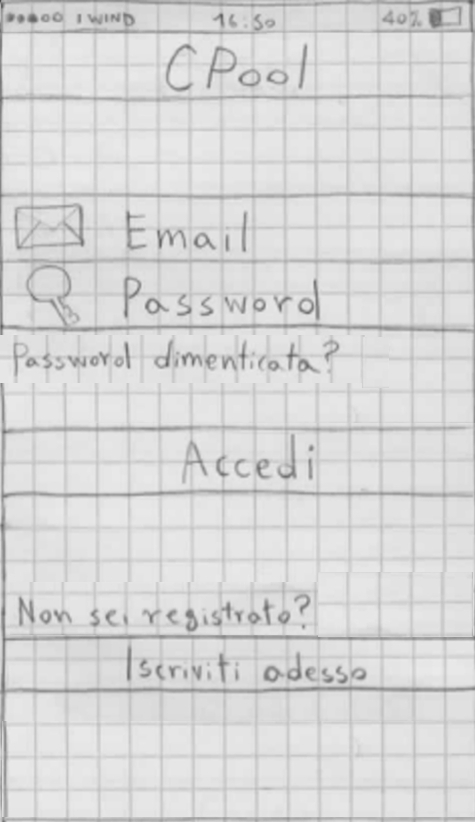 I WIND 16:50 40%
CPool
Email
Password
Password dimenticata?
Accedi
Non sei registrato?
Iscriviti adesso